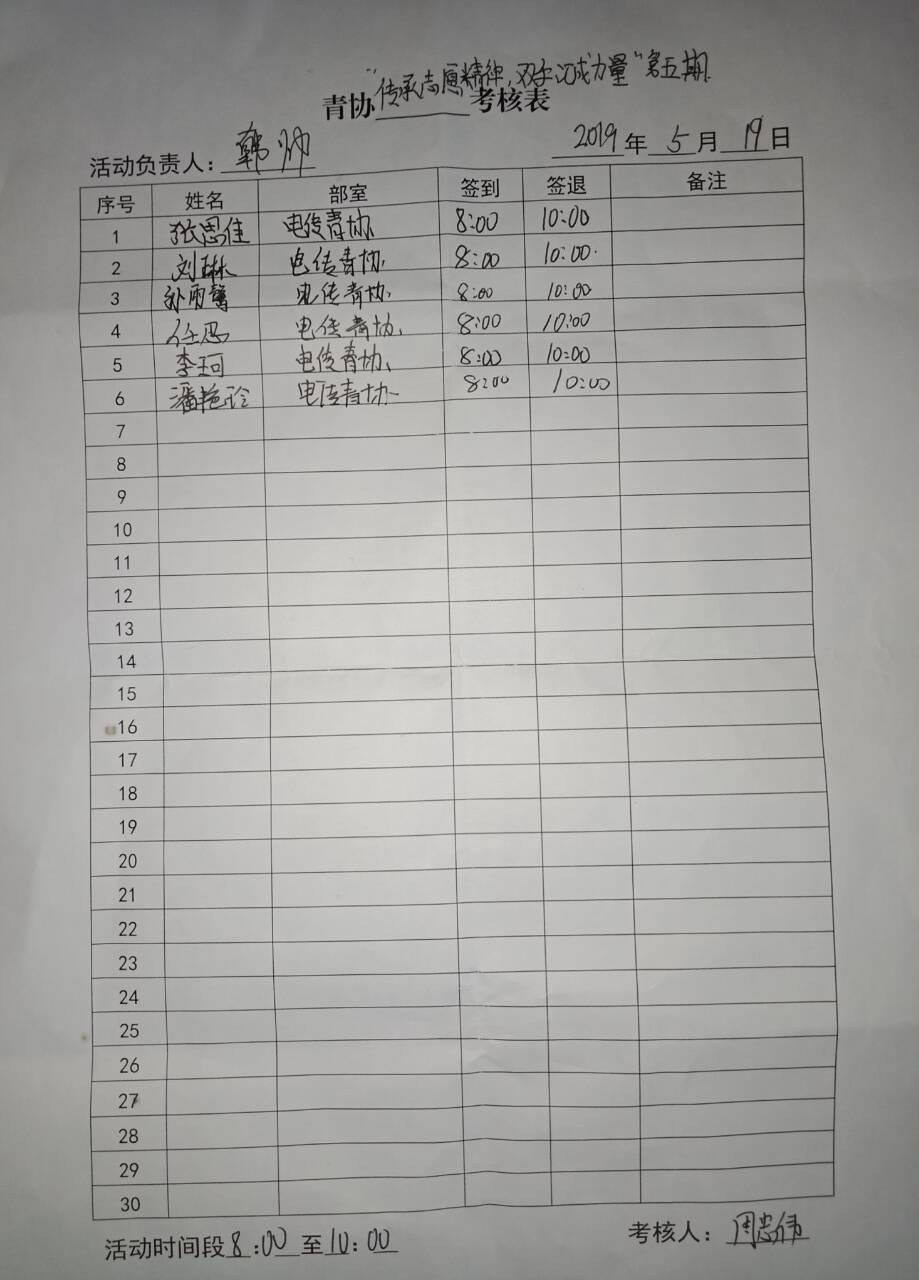 “传承志愿精神,汇成力量”第五期.
青协 考核表
活动负责人:韩帅 2019年5月19日
序号 姓名 部室 签到 签退 备注
1 张思佳 电传青协 8:00 10:00
2 刘琳 电传青协 8:00 10:00
3 孙雨馨 电传青协 8:00 10:00
4 任思 电传青协 8:00 10:00
5 李珂 电传青协 8:00 10:00
6 潘艳玲 电传青协 8:00 10:00
7
8
9
10
11
12
13
14
15
16
17
18
19
20
21
22
23
24
25
26
27
28
29
30
活动时间段8:00至10:00 考核人:周忠伟